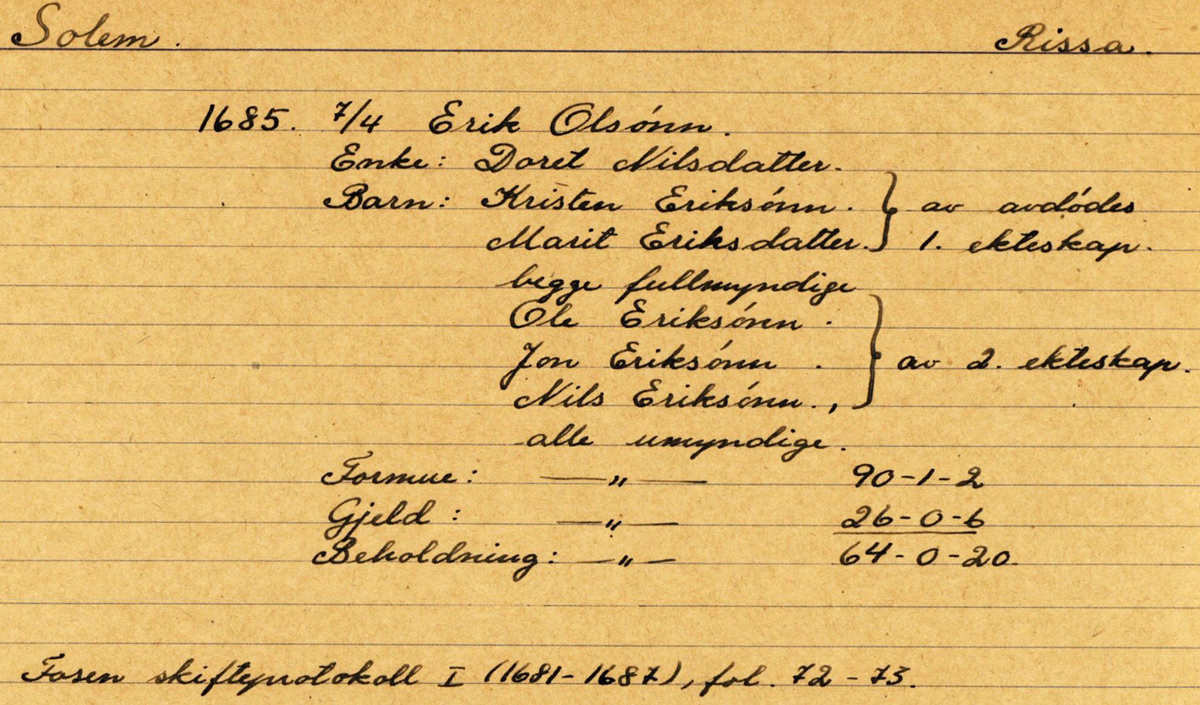 Solem. Rissa.
1685. 7/4 Erik Olsónn.
Enke: Doret Nilsdatter.
Barn: Kristen Eriksónn. } av avdódes
Marit Eriksdatter. } 1. ekteskap.
begge fullmyndige
Ole Eriksónn.
Jon Eriksónn. } av 2. ekteskap.
Nils Eriksónn.,
alle umyndige.
Formue: —„— 90-1-2
Gjeld: —„— 26-0-6
Beholdning: —„— 64-0-20.
Fosen skifteprotokoll I (1681-1687), fol. 72-73.